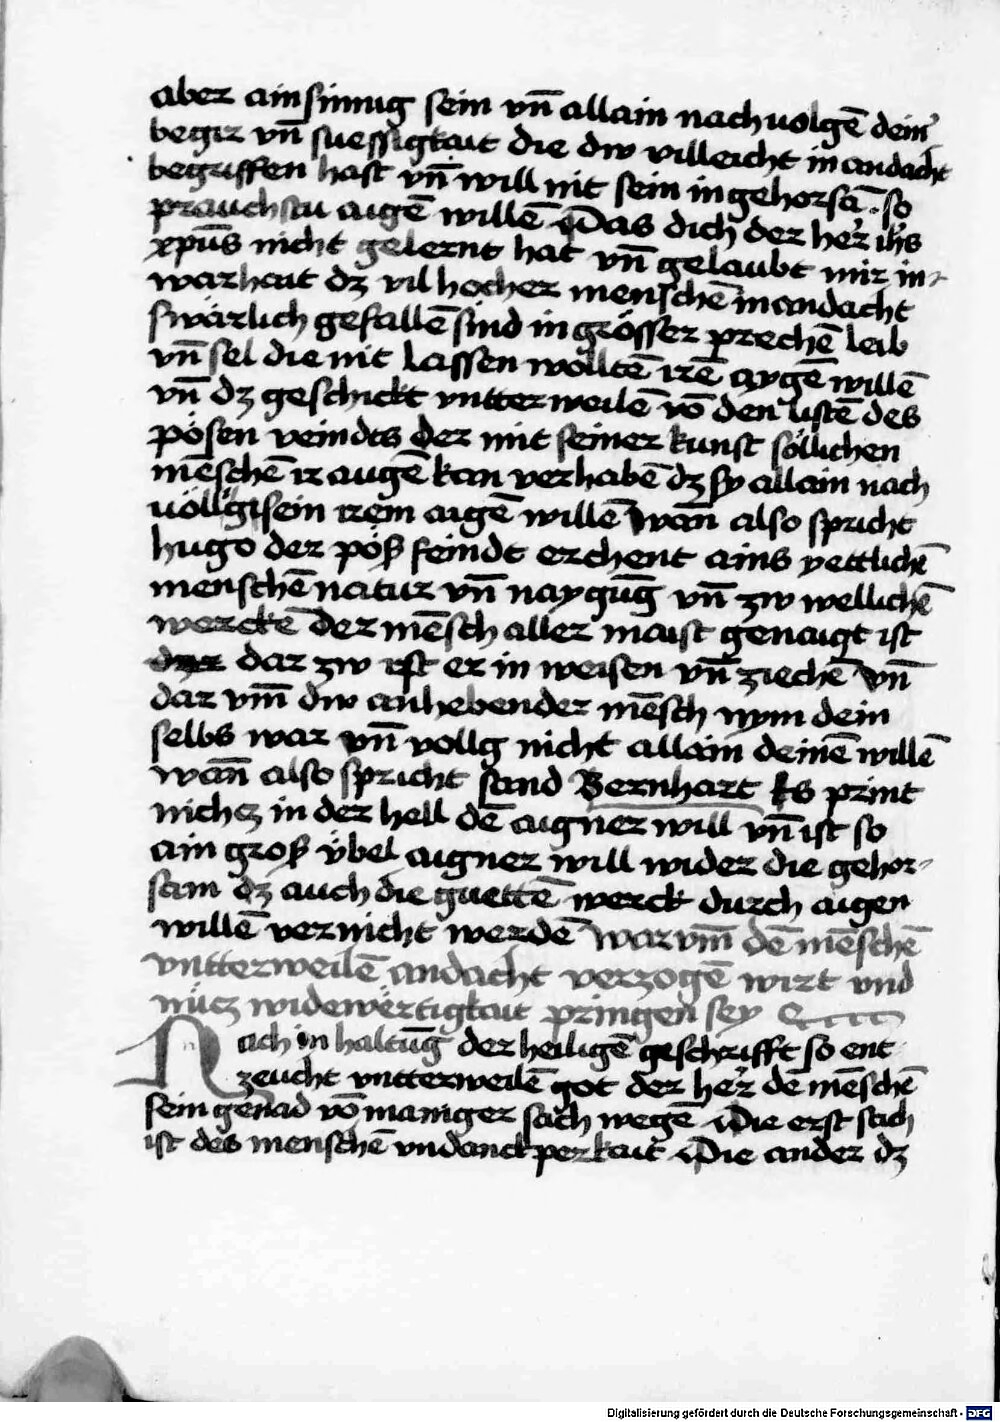 aber ainsinnig sein vn̄ allain nachuolgē dein̄
begir vn̄ suessigkait die dw villeicht in andacht
begriffen hast vn̄ will nit sein in gehorsā . so
prauchstu aigē willē Das dich der her̄ ih̄s
xpūs nicht gelernt hat vn̄ gelaubt mir in
warhait dz vil hocher menschē in andacht
swärlich gefallē sind in grösser prechē leib
vn̄ sel die nit lassen woltē irē aygē willē
vn̄ dz geschickt vntterweilē vō den listē des
pösen veindts der mit seiner kunst söllichen
mēschē ir augē kan verhabē dz sy allain nach
uöllgig sein irem aigē willē Wan̄ also spricht
hugo der pöß feindt erchent ains yettlichē
menschē natur vn̄ naygūg vn̄ zw wellichē
werckē der mēsch aller maist genaigt ist
dar zw ist er in weisen vn̄ ziechē Vn̄
dar vm̄ dw anhebender mēsch nym dein
selbs war vn̄ vollg nicht allain deinē willē
wan̄ also spricht sand Bernhart Es print
nichcz in der hell dē aigner will vn̄ ist so
ain groß übel aigner will wider die gehor-
sam dz auch die guettē werck durch aigen
willē vernicht werdē War vm̄ dē mēschē
vntterweilē andacht verzogē wirt vnd
nücz widewërtigkait pringen sey
Nach in haltūg der heiligē geschrifft so ent
zeucht vntterweilē got der her̄ dē mēschē
sein genad vō maniger sach wegē Die erst sach
ist des menschē vndanckperkait Die ander dz
Digitalisierung gefördert durch die Deutsche Forschungsgemeinschaft - DFG